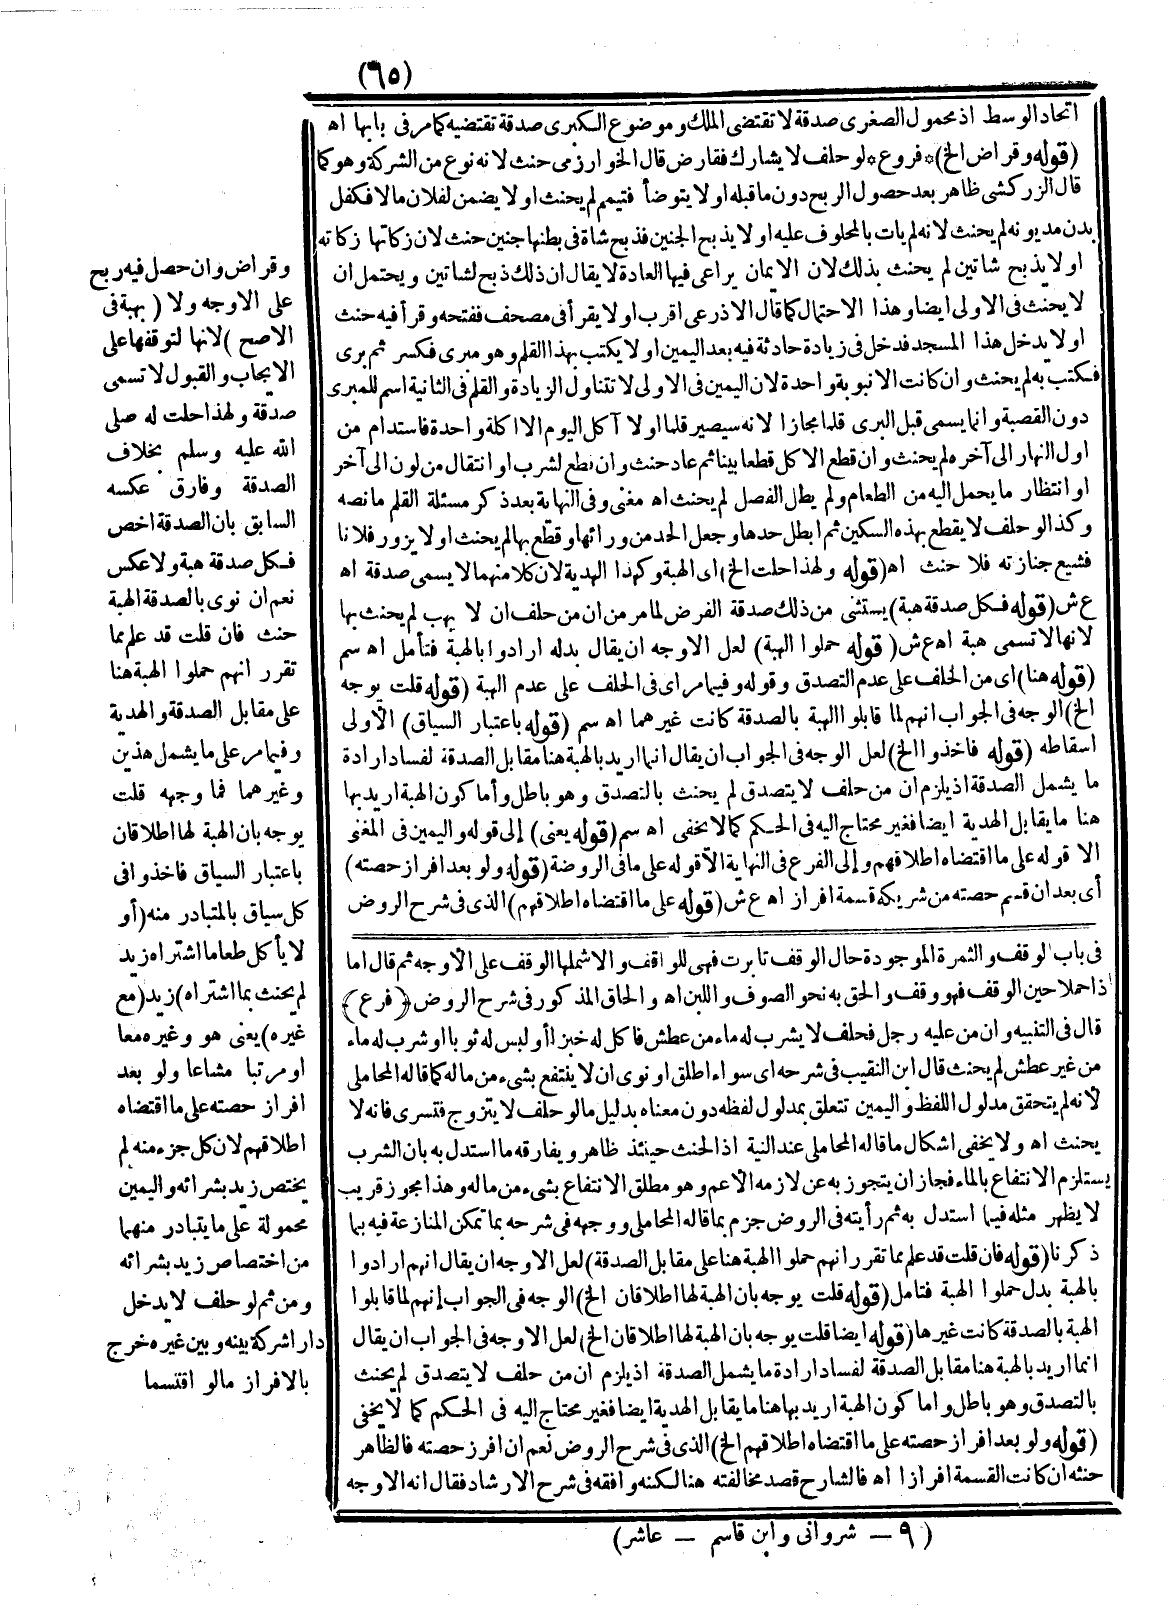 (٦٥)
اتحاد الوسط اذ محمول الصغرى صدقة لا تقتضى الملك وموضوع الكبرى صدقة تقتضيه كما مر فى بابها اه
(قوله وقراض الخ) *فروع* لو حلف لا يشارك فقارض قال الخوارزمى حنث لانه نوع من الشركة وهو كما
قال الزركشى ظاهر بعد حصول الربح دون ما قبله او لا يتوضأ فتيمم لم يحنث او لا يضمن لفلان مالا فكفل
بدن مديونه لم يحنث لانه لم يات بالمحلوف عليه او لا يذبح الجنين فذبح شاة فى بطنها جنين حنث لان زكاتها زكاته
او لا يذبح شاتين لم يحنث بذلك لان الايمان يراعى فيها العادة لا يقال ان ذلك ذبح لشاتين ويحتمل ان
لا يحنث فى الاولى ايضا وهذا الاحتمال كما قال الاذرعى اقرب او لا يقرأ فى مصحف ففتحه وقرأ فيه حنث
او لا يدخل هذا المسجد فدخل فى زيادة حادثة فيه بعد اليمين او لا يكتب بهذا القلم وهو مبرى فكسر ثم برى
فكتب به لم يحنث وان كانت الانبوبة واحدة لان اليمين فى الاولى لا تتناول الزيادة والقلم فى الثانية اسم للمبرى
دون القصبة وانما يسمى قبل البرى قلما مجازا لانه سيصير قلما او لا آكل اليوم الا اكلة واحدة فاستدام من
اول النهار الى آخره لم يحنث وان قطع الاكل قطعا بينا ثم عاد حنث وان قطع لشرب او انتقال من لون الى آخر
او انتظار ما يحمل اليه من الطعام ولم يطل الفصل لم يحنث اه مغنى وفى النهاية بعد ذكر مسئلة القلم ما نصه
وكذا لو حلف لا يقطع بهذه السكين ثم ابطل حدها وجعل الحد من ورائها وقطع بها لم يحنث او لا يزور فلانا
فشيع جنازته فلا حنث اه (قوله ولهذا حلت الخ) اى الهبة وكهذا الهدية لان كلا منهما لا يسمى صدقة اه
ع ش (قوله فكل صدقة هبة) يستثنى من ذلك صدقة الفرض لما مر من ان من حلف ان لا يهب لم يحنث بها
لانها لا تسمى هبة اه ع ش (قوله حملوا الهبة) لعل الاوجه ان يقال بدله ارادوا بالهبة فتأمل اه سم
(قوله هنا) اى من الحلف على عدم التصدق وقوله وفيما مر اى فى الحلف على عدم الهبة (قوله قلت يوجه
الخ) الوجه فى الجواب انهم لما قابلوا الهبة بالصدقة كانت غيرهما اه سم (قوله باعتبار السياق) الاولى
اسقاطه (قوله فاخذوا الخ) لعل الوجه فى الجواب ان يقال انما اريد بالهبة هنا مقابل الصدقة لفساد ارادة
ما يشمل الصدقة اذ يلزم ان من حلف لا يتصدق لم يحنث بالتصدق وهو باطل وأما كون الهبة اريد بها
هنا ما يقابل الهدية ايضا فغير محتاج اليه فى الحكم كما لا يخفى اه سم (قوله يعنى) إلى قوله واليمين فى المغنى
الا قوله على ما اقتضاه اطلاقهم وإلى الفرع فى النهاية الا قوله على ما فى الروضة (قوله ولو بعد افراز حصته)
أى بعد ان قسم حصته من شريكه قسمة افراز اه ع ش (قوله على ما اقتضاه اطلاقهم) الذى فى شرح الروض
وقراض وان حصل فيه ربح
على الاوجه ولا (بهبة فى
الاصح) لانها لتوقفها على
الايجاب والقبول لا تسمى
صدقة ولهذا حلت له صلى
الله عليه وسلم بخلاف
الصدقة وفارق عكسه
السابق بان الصدقة اخص
فكل صدقة هبة ولا عكس
نعم ان نوى بالصدقة الهبة
حنث فان قلت قد علم مما
تقرر انهم حملوا الهبة هنا
على مقابل الصدقة والهدية
وفيما مر على ما يشمل هذين
وغيرهما فما وجهه قلت
يوجه بان الهبة لها اطلاقان
باعتبار السياق فاخذوا فى
كل سياق بالمتبادر منه (أو
لا يأكل طعاما اشتراه زيد
لم يحنث بما اشتراه) زيد (مع
غيره) يعنى هو وغيره معا
او مرتبا مشاعا ولو بعد
افراز حصته على ما اقتضاه
اطلاقهم لان كل جزء منه لم
يختص زيد بشرائه واليمين
محمولة على ما يتبادر منهما
من اختصاص زيد بشرائه
ومن ثم لو حلف لا يدخل
دارا شركة بينه وبين غيره خرج
بالافراز ما لو اقتسما
فى باب الوقف والثمرة الموجودة حال الوقف تابرت فهى للواقف والا شملها الوقف على الأوجه ثم قال اما
اذا حملا حين الوقف فهو وقف والحق به نحو الصوف واللبن اه والحاق المذكور فى شرح الروض (فرع)
قال فى التنبيه وان من عليه رجل فحلف لا يشرب له ماء من عطش فاكل له خبزا أو لبس له ثوبا او شرب له ماء
من غير عطش لم يحنث قال ابن النقيب فى شرحه اى سواء اطلق او نوى ان لا ينتفع بشىء من ماله كما قاله المحاملى
لأنه لم يتحقق مدلول اللفظ واليمين تتعلق بمدلول لفظه دون معناه بدليل ما لو حلف لا يتزوج فتسرى فانه لا
يحنث اه ولا يخفى اشكال ما قاله المحاملى عند النية اذ الحنث حينئذ ظاهر ويفارقه ما استدل به بان الشرب
يستلزم الانتفاع بالماء فجاز ان يتجوز به عن لازمه الأعم وهو مطلق الانتفاع بشىء من ماله وهذا مجوز قريب
لا يظهر مثله فيما استدل به ثم رأيته فى الروض جزم بما قاله المحاملى ووجهه فى شرحه بما تمكن المنازعة فيه بما
ذكرنا (قوله فان قلت قد علم مما تقرر انهم حملوا الهبة هنا على مقابل الصدقة) لعل الاوجه ان يقال انهم ارادوا
بالهبة بدل حملوا الهبة فتامل (قوله قلت يوجه بان الهبة لها اطلاقان الخ) الوجه فى الجواب إنهم لما قابلوا
الهبة بالصدقة كانت غيرها (قوله ايضا قلت يوجه بان الهبة لها اطلاقان الخ) لعل الاوجه فى الجواب ان يقال
انما اريد بالهبة هنا مقابل الصدقة لفساد ارادة ما يشمل الصدقة اذ يلزم ان من حلف لا يتصدق لم يحنث
بالتصدق وهو باطل واما كون الهبة اريد بها هنا ما يقابل الهدية ايضا فغير محتاج اليه فى الحكم كما لا يخفى
(قوله ولو بعد افراز حصته على ما اقتضاه اطلاقهم الخ) الذى فى شرح الروض نعم ان افرز حصته فالظاهر
حنثه ان كانت القسمة افرازا اه فالشارح قصد مخالفته هنا لكنه وافقه فى شرح الارشاد فقال انه الاوجه
(٩ — شروانى وابن قاسم — عاشر)